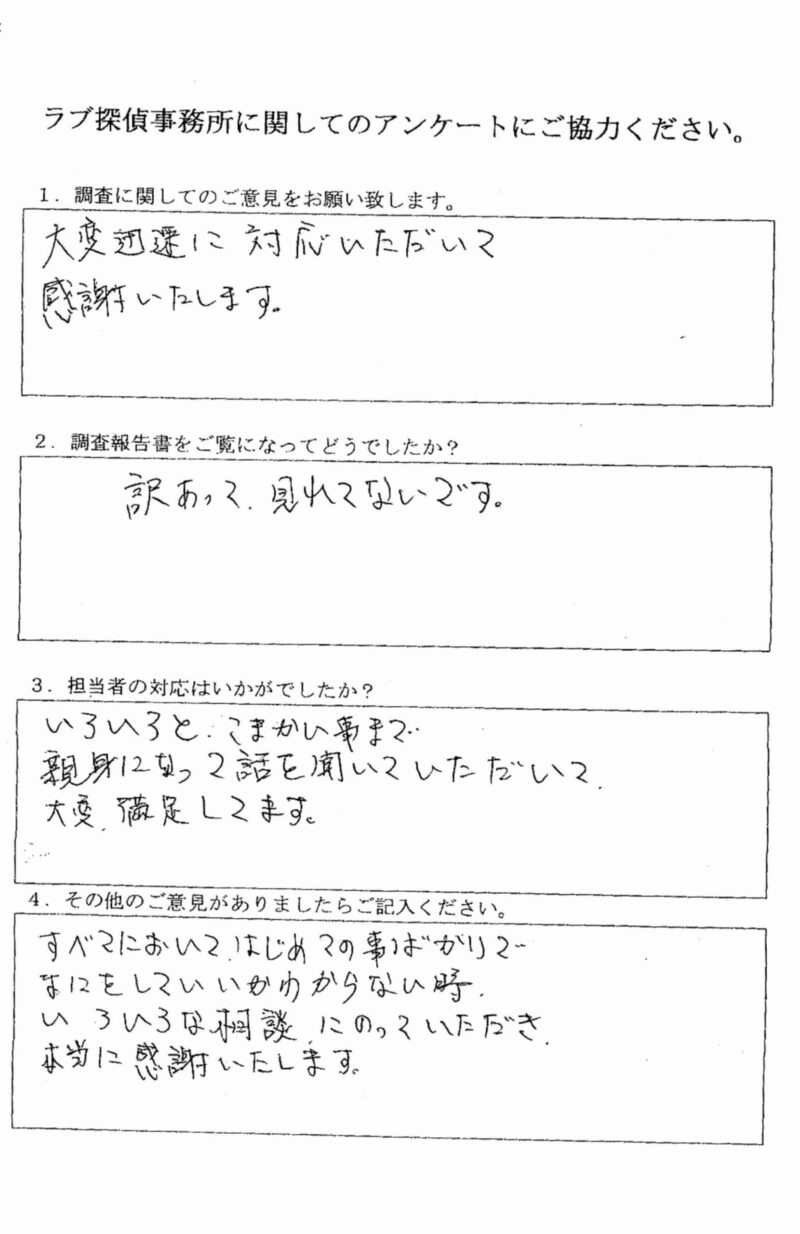 ラブ探偵事務所に関してのアンケートにご協力ください。
1．調査に関してのご意見をお願い致します。
大変迅速に対応いただいて
感謝いたします。
2．調査報告書をご覧になってどうでしたか？
訳あって、見れてないです。
3．担当者の対応はいかがでしたか？
いろいろと、こまかい事まで
親身になって話を聞いていただいて、
大変、満足してます。
4．その他のご意見がありましたらご記入ください。
すべてにおいて、はじめての事ばかりで
なにをしていいかわからない時、
いろいろな相談にのっていただき、
本当に感謝いたします。